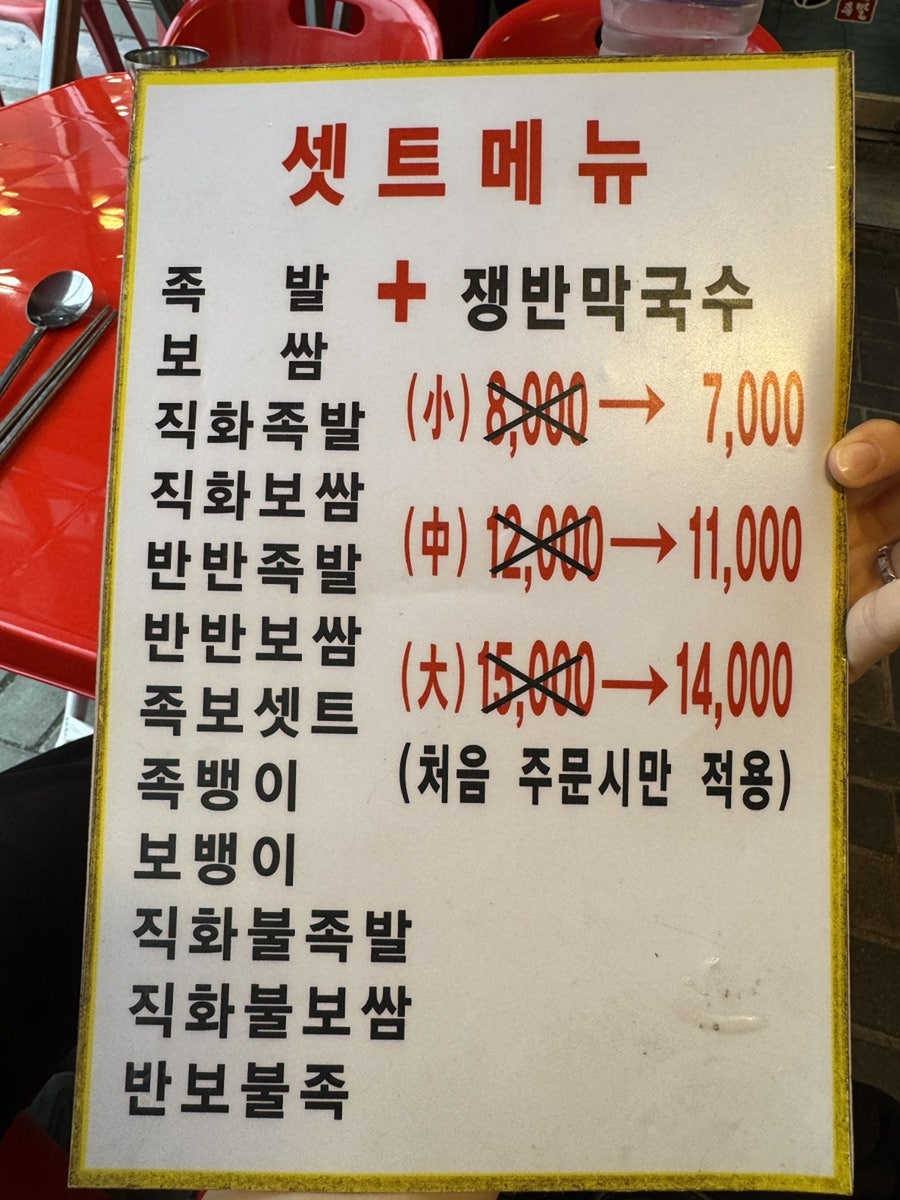 셋트메뉴
족 발 + 쟁반막국수
보 쌈
직화족발 (小) 8,000 → 7,000
직화보쌈
반반족발 (中) 12,000 → 11,000
반반보쌈
족보셋트 (大) 15,000 → 14,000
족뱅이 (처음 주문시만 적용)
보뱅이
직화불족발
직화불보쌈
반보불족